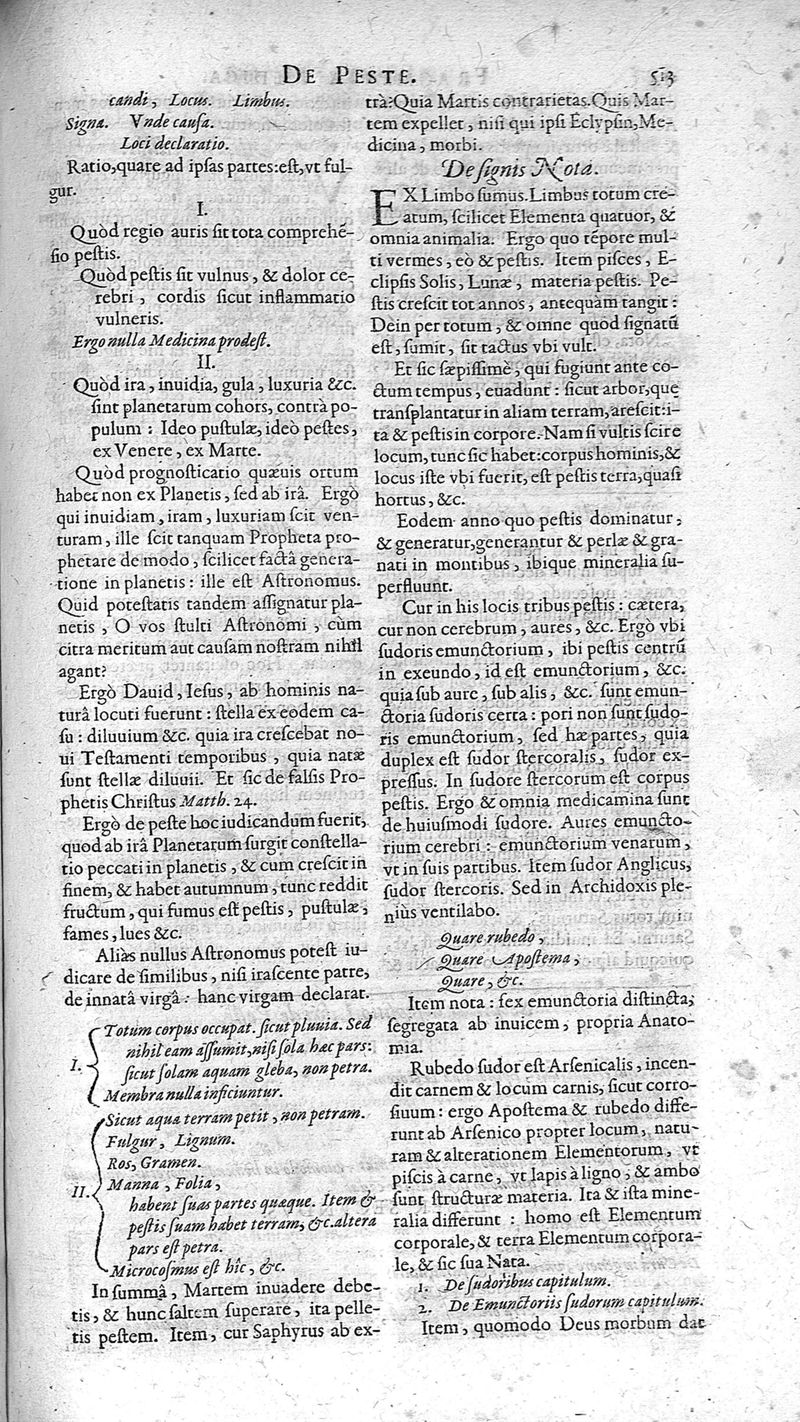 DE PESTE. 513
candi, Locus. Limbus.
Signa. Vnde cauſa.
Loci declaratio.
Ratio, quare ad ipſas partes: eſt, vt ful-
gur.
I.
Quòd regio auris ſit tota comprehẽ-
ſio peſtis.
Quòd peſtis ſit vulnus, & dolor ce-
rebri, cordis ſicut inflammatio
vulneris.
Ergo nulla Medicina prodeſt.
II.
Quòd ira, inuidia, gula, luxuria &c.
ſint planetarum cohors, contrà po-
pulum: Ideo puſtulæ, ideò peſtes,
ex Venere, ex Marte.
Quòd prognoſticatio quæuis ortum
habet non ex Planetis, ſed ab irâ. Ergò
qui inuidiam, iram, luxuriam ſcit ven-
turam, ille ſcit tanquam Propheta pro-
phetare de modo, ſcilicet factâ genera-
tione in planetis: ille eſt Aſtronomus.
Quid poteſtatis tandem aſſignatur pla-
netis, O vos ſtulti Aſtronomi, cùm
citra meritum aut cauſam noſtram nihil
agant?
Ergò Dauid, Ieſus, ab hominis na-
turâ locuti fuerunt: ſtella ex eodem ca-
ſu: diluuium &c. quia ira creſcebat no-
ui Teſtamenti temporibus, quia natæ
ſunt ſtellæ diluuii. Et ſic de falſis Pro-
phetis Chriſtus Matth. 24.
Ergò de peſte hoc iudicandum fuerit,
quod ab irâ Planetarum ſurgit conſtella-
tio peccati in planetis, & cum creſcit in
finem, & habet autumnum, tunc reddit
fructum, qui fumus eſt peſtis, puſtulæ,
fames, lues &c.
Aliàs nullus Aſtronomus poteſt iu-
dicare de ſimilibus, niſi iraſcente patre,
de innatâ virgâ: hanc virgam declarat.
I. Totum corpus occupat. ſicut pluuia. Sed
nihil eam aſſumit, niſi ſola hæc pars:
ſicut ſolam aquam gleba, non petra.
Membra nulla inficiuntur.
II. Sicut aqua terram petit, non petram.
Fulgur, Lignum.
Ros, Gramen.
Manna, Folia,
habent ſuas partes quæque. Item &
peſtis ſuam habet terram, &c. altera
pars eſt petra.
Microcoſmus eſt hîc, &c.
In ſummâ, Martem inuadere debe-
tis, & hunc ſaltem ſuperare, ita pelle-
tis peſtem. Item, cur Saphyrus ab ex-
trà? Quia Martis contrarietas. Quis Mar-
tem expellet, niſi qui ipſi Eclypſin, Me-
dicina, morbi.
De ſignis Nota.
EX Limbo ſumus. Limbus totum cre-
atum, ſcilicet Elementa quatuor, &
omnia animalia. Ergo quo tẽpore mul-
ti vermes, eò & peſtis. Item piſces, E-
clipſis Solis, Lunæ, materia peſtis. Pe-
ſtis creſcit tot annos, antequàm tangit:
Dein per totum, & omne quod ſignatũ
eſt, ſumit, ſit tactus vbi vult.
Et ſic ſæpiſſimè, qui fugiunt ante co-
ctum tempus, euadunt: ſicut arbor, quę
tranſplantatur in aliam terram, areſcit: i-
ta & peſtis in corpore. Nam ſi vultis ſcire
locum, tunc ſic habet: corpus hominis, &
locus iſte vbi fuerit, eſt peſtis terra, quaſi
hortus, &c.
Eodem anno quo peſtis dominatur,
& generatur, generantur & perlæ & gra-
nati in montibus, ibique mineralia ſu-
perfluunt.
Cur in his locis tribus peſtis: cætera,
cur non cerebrum, aures, &c. Ergò vbi
ſudoris emunctorium, ibi peſtis centrũ
in exeundo, id eſt emunctorium, &c.
quia ſub aure, ſub alis, &c. ſunt emun-
ctoria ſudoris certa: pori non ſunt ſudo-
ris emunctorium, ſed hæ partes, quia
duplex eſt ſudor ſtercoralis, ſudor ex-
preſſus. In ſudore ſtercorum eſt corpus
peſtis. Ergo & omnia medicamina ſunt
de huiuſmodi ſudore. Aures emuncto-
rium cerebri: emunctorium venarum,
vt in ſuis partibus. Item ſudor Anglicus,
ſudor ſtercoris. Sed in Archidoxis ple-
niùs ventilabo.
Quare rubedo,
Quare Apoſtema,
Quare, &c.
Item nota: ſex emunctoria diſtincta,
ſegregata ab inuicem, propria Anato-
mia.
Rubedo ſudor eſt Arſenicalis, incen-
dit carnem & locum carnis, ſicut corro-
ſiuum: ergo Apoſtema & rubedo diffe-
runt ab Arſenico propter locum, natu-
ram & alterationem Elementorum, vt
piſcis à carne, vt lapis à ligno, & ambo
ſunt ſtructuræ materia. Ita & iſta mine-
ralia differunt: homo eſt Elementum
corporale, & terra Elementum corpora-
le, & ſic ſua Nata.
1. De ſudoribus capitulum.
2. De Emunctoriis ſudorum capitulum.
Item, quomodo Deus morbum dat